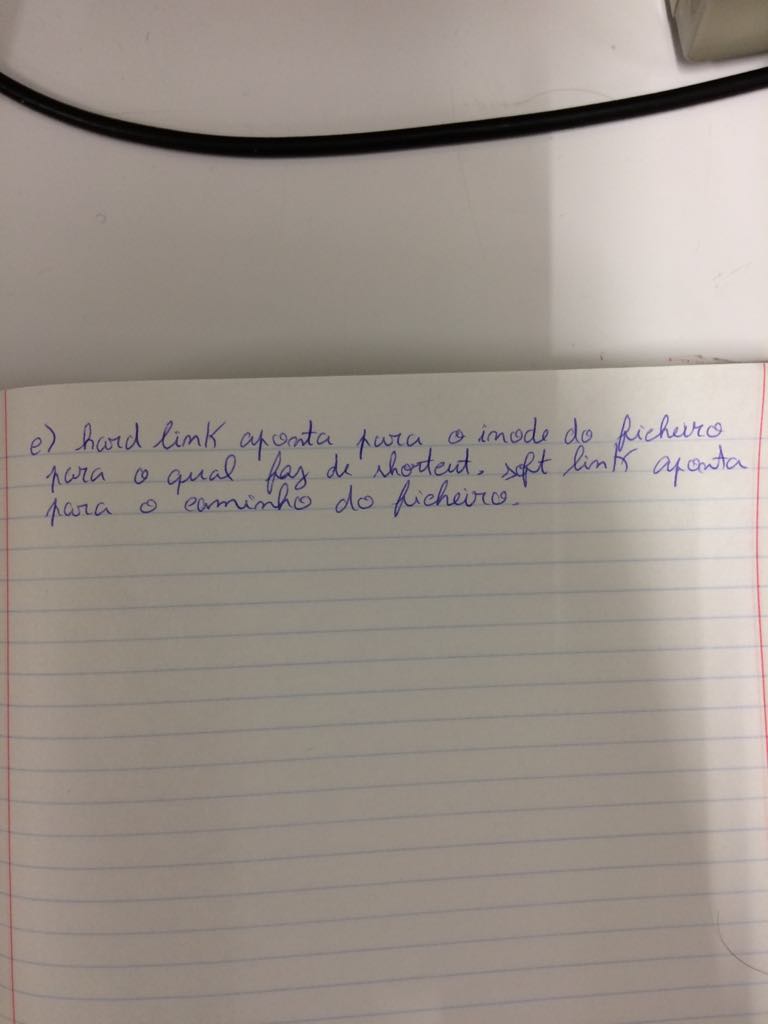 e) hard link aponta para o inode do ficheiro
para o qual faz de shortcut. soft link aponta
para o caminho do ficheiro.